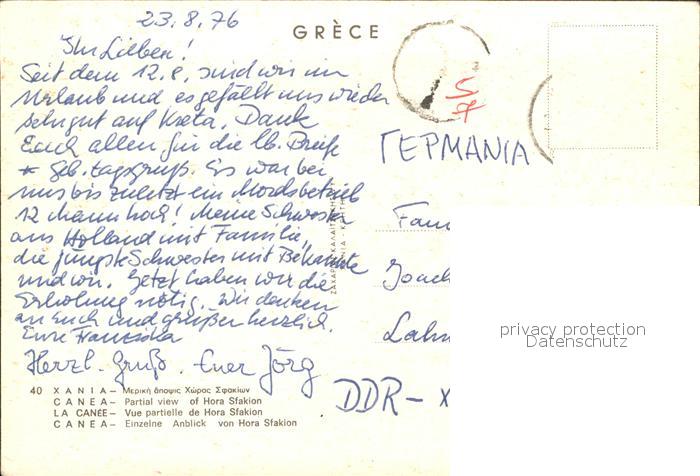 23.8.76
GRÈCE
Ihr Lieben!
Seit dem 12.8. sind wir im
Urlaub und es gefällt uns wieder
sehr gut auf Kreta. Dank
Euch allen für die lb. Briefe
+ Geb.tagsgruß. Es war bei
uns bis zuletzt ein Mordsbetrieb
12 Mann hoch! Meine Schwester
aus Holland mit Familie,
die jüngste Schwester mit Bekannte
und wir. Jetzt haben wir die
Erholung nötig. Wir denken
an Euch und grüßen herzlich.
Eure Franziska
Herzl. Gruß. Euer Jörg
5
7
ΓΕΡΜΑΝΙΑ
Fam
Joach
Lahn
DDR - X
privacy protection
Datenschutz
40 ΧΑΝΙΑ — Μερική άποψις Χώρας Σφακίων
CANEA — Partial view of Hora Sfakion
LA CANÉE — Vue partielle de Hora Sfakion
CANEA — Einzelne Anblick von Hora Sfakion